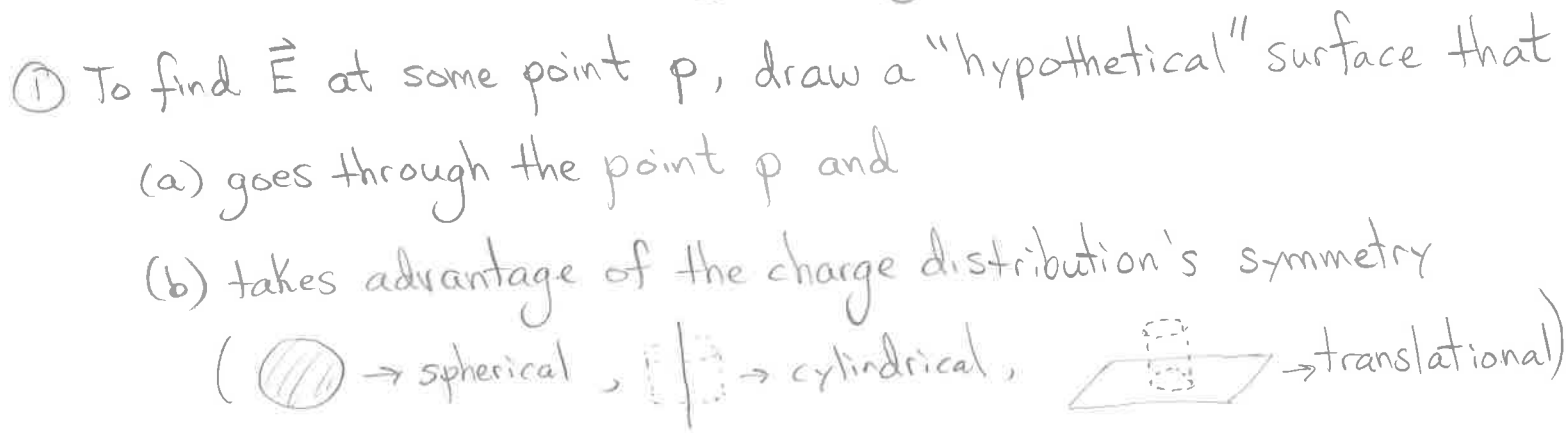 ① To find E⃗ at some point p, draw a "hypothetical" surface that
(a) goes through the point p and
(b) takes advantage of the charge distribution's symmetry
( → spherical, → cylindrical, → translational)